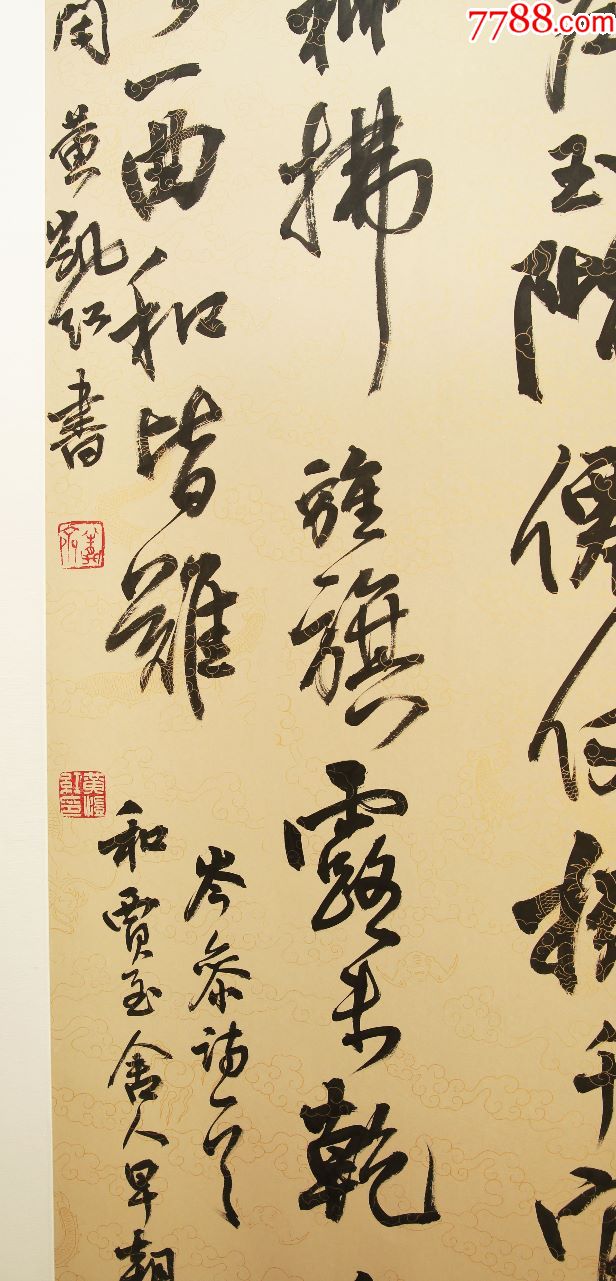 7788.com
玉階僊仗擁千官
柳拂旌旗露未乾
一曲和皆難
岑參詩一首
和賈至舍人早朝
黃凱紅書